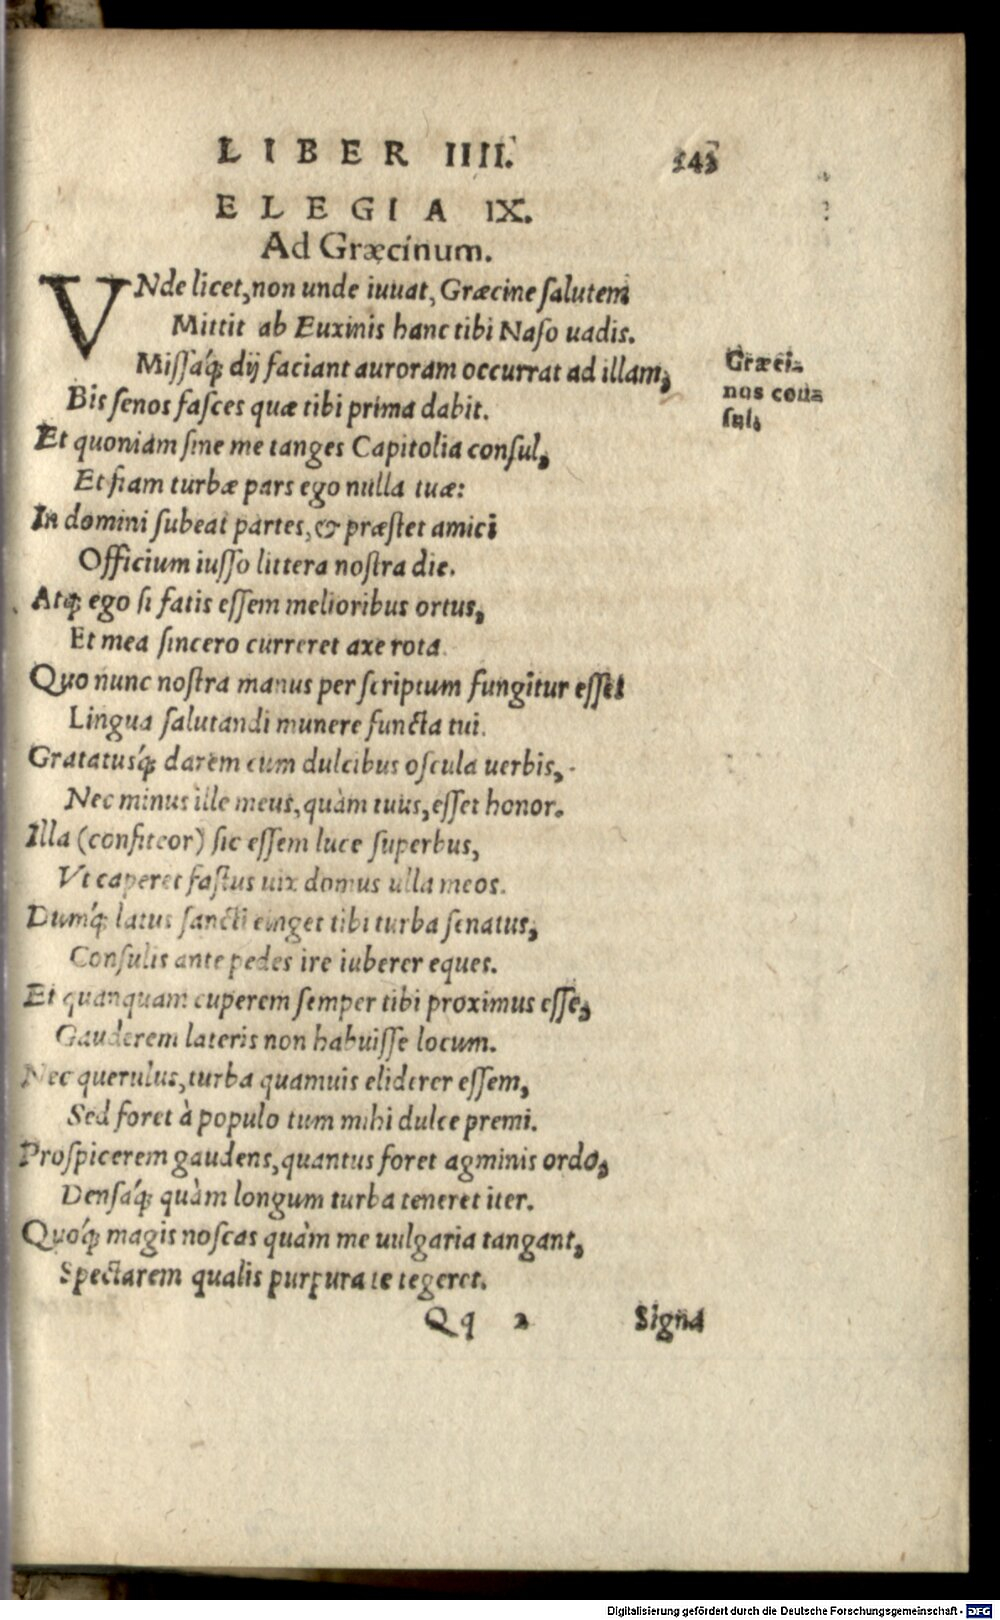 LIBER IIII. 243
ELEGIA IX.
Ad Græcinum.
VNde licet, non unde iuuat, Græcine salutem
Mittit ab Euxinis hanc tibi Naso uadis.
Missaq́; dij faciant auroram occurrat ad illam,
Græci-
nos con-
sul.
Bis senos fasces quæ tibi prima dabit.
Et quoniam sine me tanges Capitolia consul,
Et fiam turbæ pars ego nulla tuæ:
In domini subeat partes, & præstet amici
Officium iusso littera nostra die.
Atq; ego si fatis essem melioribus ortus,
Et mea sincero curreret axe rota.
Quo nunc nostra manus per scriptum fungitur esset
Lingua salutandi munere functa tui.
Gratatusq́; darem cum dulcibus oscula uerbis,
Nec minus ille meus, quàm tuus, esset honor.
Illa (confiteor) sic essem luce superbus,
Vt caperet fastus uix domus ulla meos.
Dumq́; latus sancti cinget tibi turba senatus,
Consulis ante pedes ire iuberer eques.
Et quanquam cuperem semper tibi proximus esse,
Gauderem lateris non habuisse locum.
Nec querulus, turba quamuis eliderer essem,
Sed foret à populo tum mihi dulce premi.
Prospicerem gaudens, quantus foret agminis ordo,
Densaq́; quàm longum turba teneret iter.
Quoq́; magis noscas quàm me uulgaria tangant,
Spectarem qualis purpura te tegeret.
Qq 2 Signa
Digitalisierung gefördert durch die Deutsche Forschungsgemeinschaft - DFG